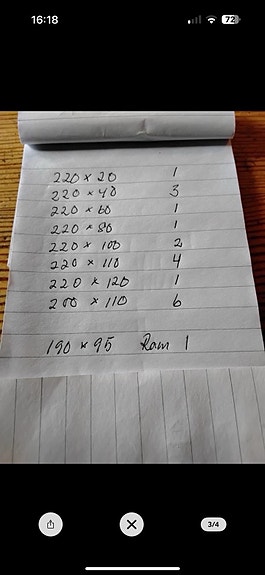 16:18 72
220 × 20 1
220 × 40 3
220 × 60 1
220 × 80 1
220 × 100 2
220 × 110 4
220 × 120 1
200 × 110 6
190 × 95 Ram 1
3/4